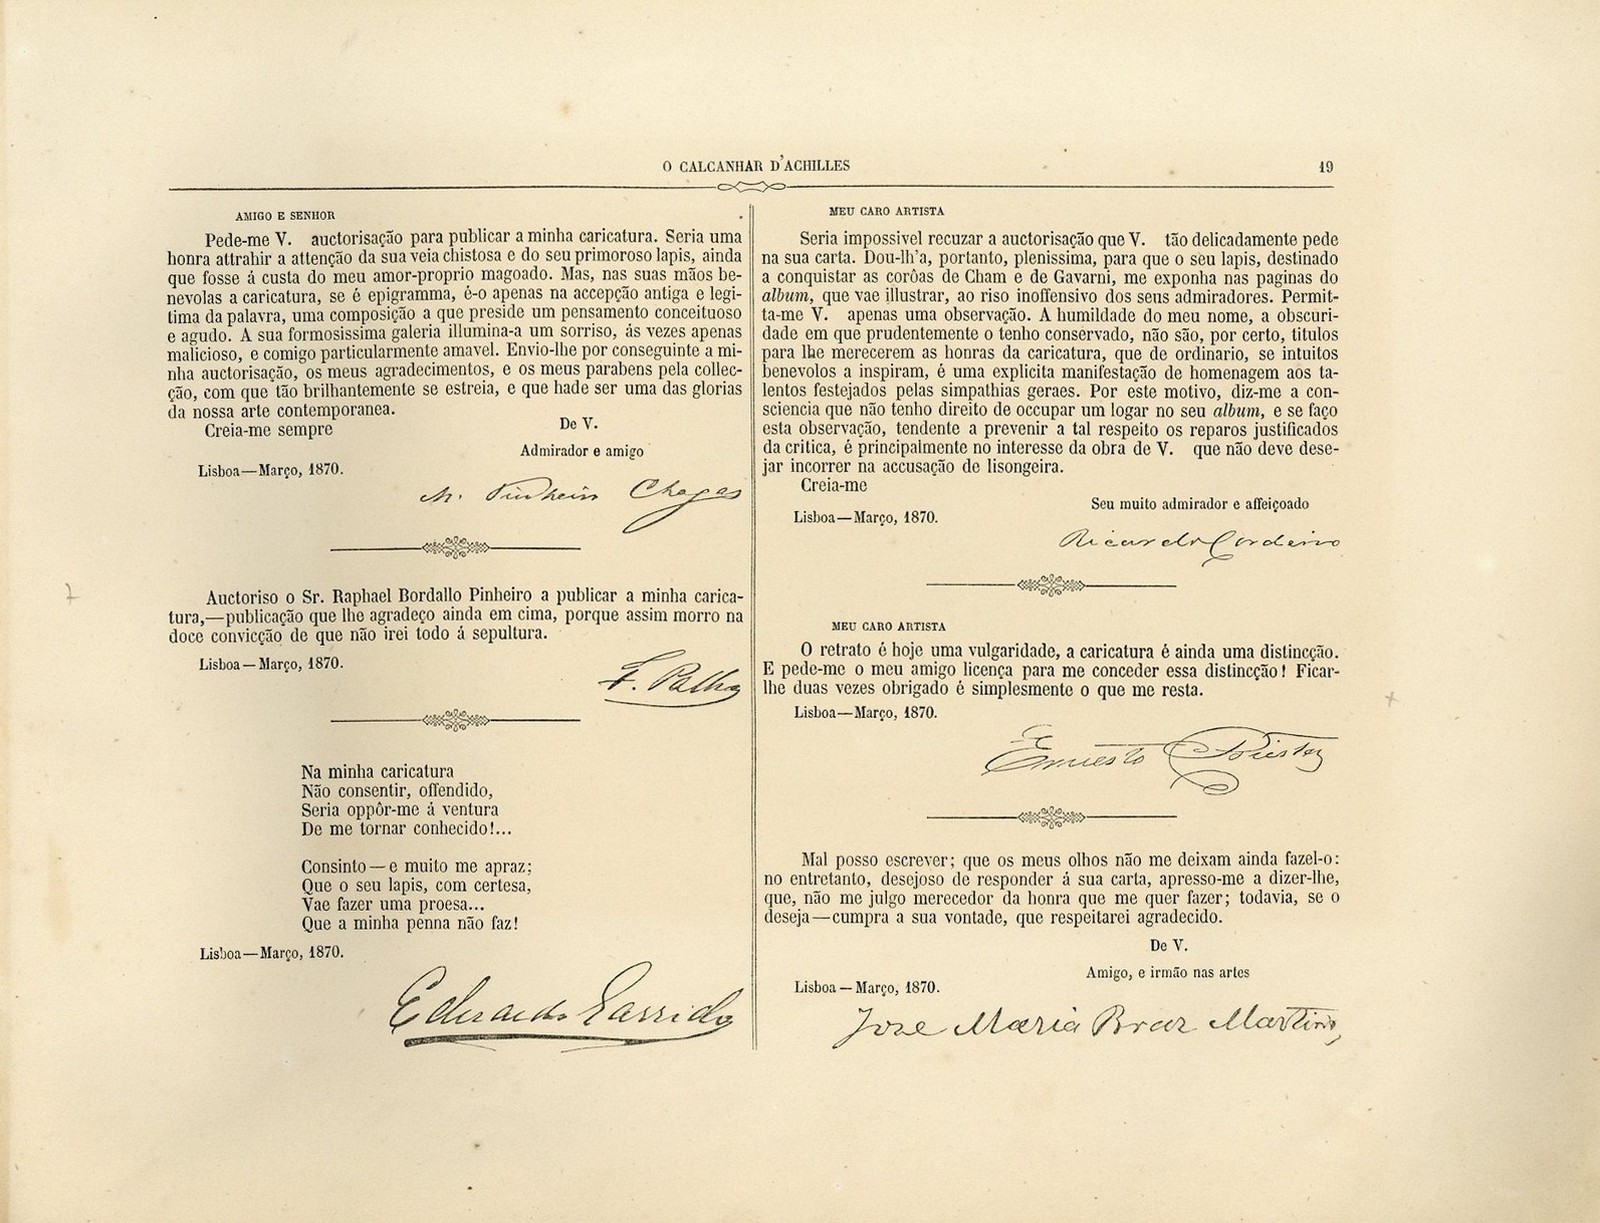 O CALCANHAR D'ACHILLES
19
AMIGO E SENHOR
Pede-me V. auctorisação para publicar a minha caricatura. Seria uma
honra attrahir a attenção da sua veia chistosa e do seu primoroso lapis, ainda
que fosse á custa do meu amor-proprio magoado. Mas, nas suas mãos be-
nevolas a caricatura, se é epigramma, é-o apenas na accepção antiga e legi-
tima da palavra, uma composição a que preside um pensamento conceituoso
e agudo. A sua formosissima galeria illumina-a um sorriso, ás vezes apenas
malicioso, e comigo particularmente amavel. Envio-lhe por conseguinte a mi-
nha auctorisação, os meus agradecimentos, e os meus parabens pela collec-
ção, com que tão brilhantemente se estreia, e que hade ser uma das glorias
da nossa arte contemporanea.
Creia-me sempre
De V.
Admirador e amigo
Lisboa—Março, 1870.
M. Pinheiro Chagas
Auctoriso o Sr. Raphael Bordallo Pinheiro a publicar a minha carica-
tura,—publicação que lhe agradeço ainda em cima, porque assim morro na
doce convicção de que não irei todo á sepultura.
Lisboa—Março, 1870.
F. Palha
Na minha caricatura
Não consentir, offendido,
Seria oppôr-me á ventura
De me tornar conhecido!...
Consinto—e muito me apraz;
Que o seu lapis, com certesa,
Vae fazer uma proesa...
Que a minha penna não faz!
Lisboa—Março, 1870.
Eduardo Garrido
MEU CARO ARTISTA
Seria impossivel recuzar a auctorisação que V. tão delicadamente pede
na sua carta. Dou-lh'a, portanto, plenissima, para que o seu lapis, destinado
a conquistar as corôas de Cham e de Gavarni, me exponha nas paginas do
album, que vae illustrar, ao riso inoffensivo dos seus admiradores. Permit-
ta-me V. apenas uma observação. A humildade do meu nome, a obscuri-
dade em que prudentemente o tenho conservado, não são, por certo, titulos
para lhe merecerem as honras da caricatura, que de ordinario, se intuitos
benevolos a inspiram, é uma explicita manifestação de homenagem aos ta-
lentos festejados pelas simpathias geraes. Por este motivo, diz-me a con-
sciencia que não tenho direito de occupar um logar no seu album, e se faço
esta observação, tendente a prevenir a tal respeito os reparos justificados
da critica, é principalmente no interesse da obra de V. que não deve dese-
jar incorrer na accusação de lisongeira.
Creia-me
Seu muito admirador e affeiçoado
Lisboa—Março, 1870.
Ricardo Cordeiro
MEU CARO ARTISTA
O retrato é hoje uma vulgaridade, a caricatura é ainda uma distincção.
E pede-me o meu amigo licença para me conceder essa distincção! Ficar-
lhe duas vezes obrigado é simplesmente o que me resta.
Lisboa—Março, 1870.
Ernesto Biester
Mal posso escrever; que os meus olhos não me deixam ainda fazel-o:
no entretanto, desejoso de responder á sua carta, apresso-me a dizer-lhe,
que, não me julgo merecedor da honra que me quer fazer; todavia, se o
deseja—cumpra a sua vontade, que respeitarei agradecido.
De V.
Amigo, e irmão nas artes
Lisboa—Março, 1870.
Jose Maria Braz Martins